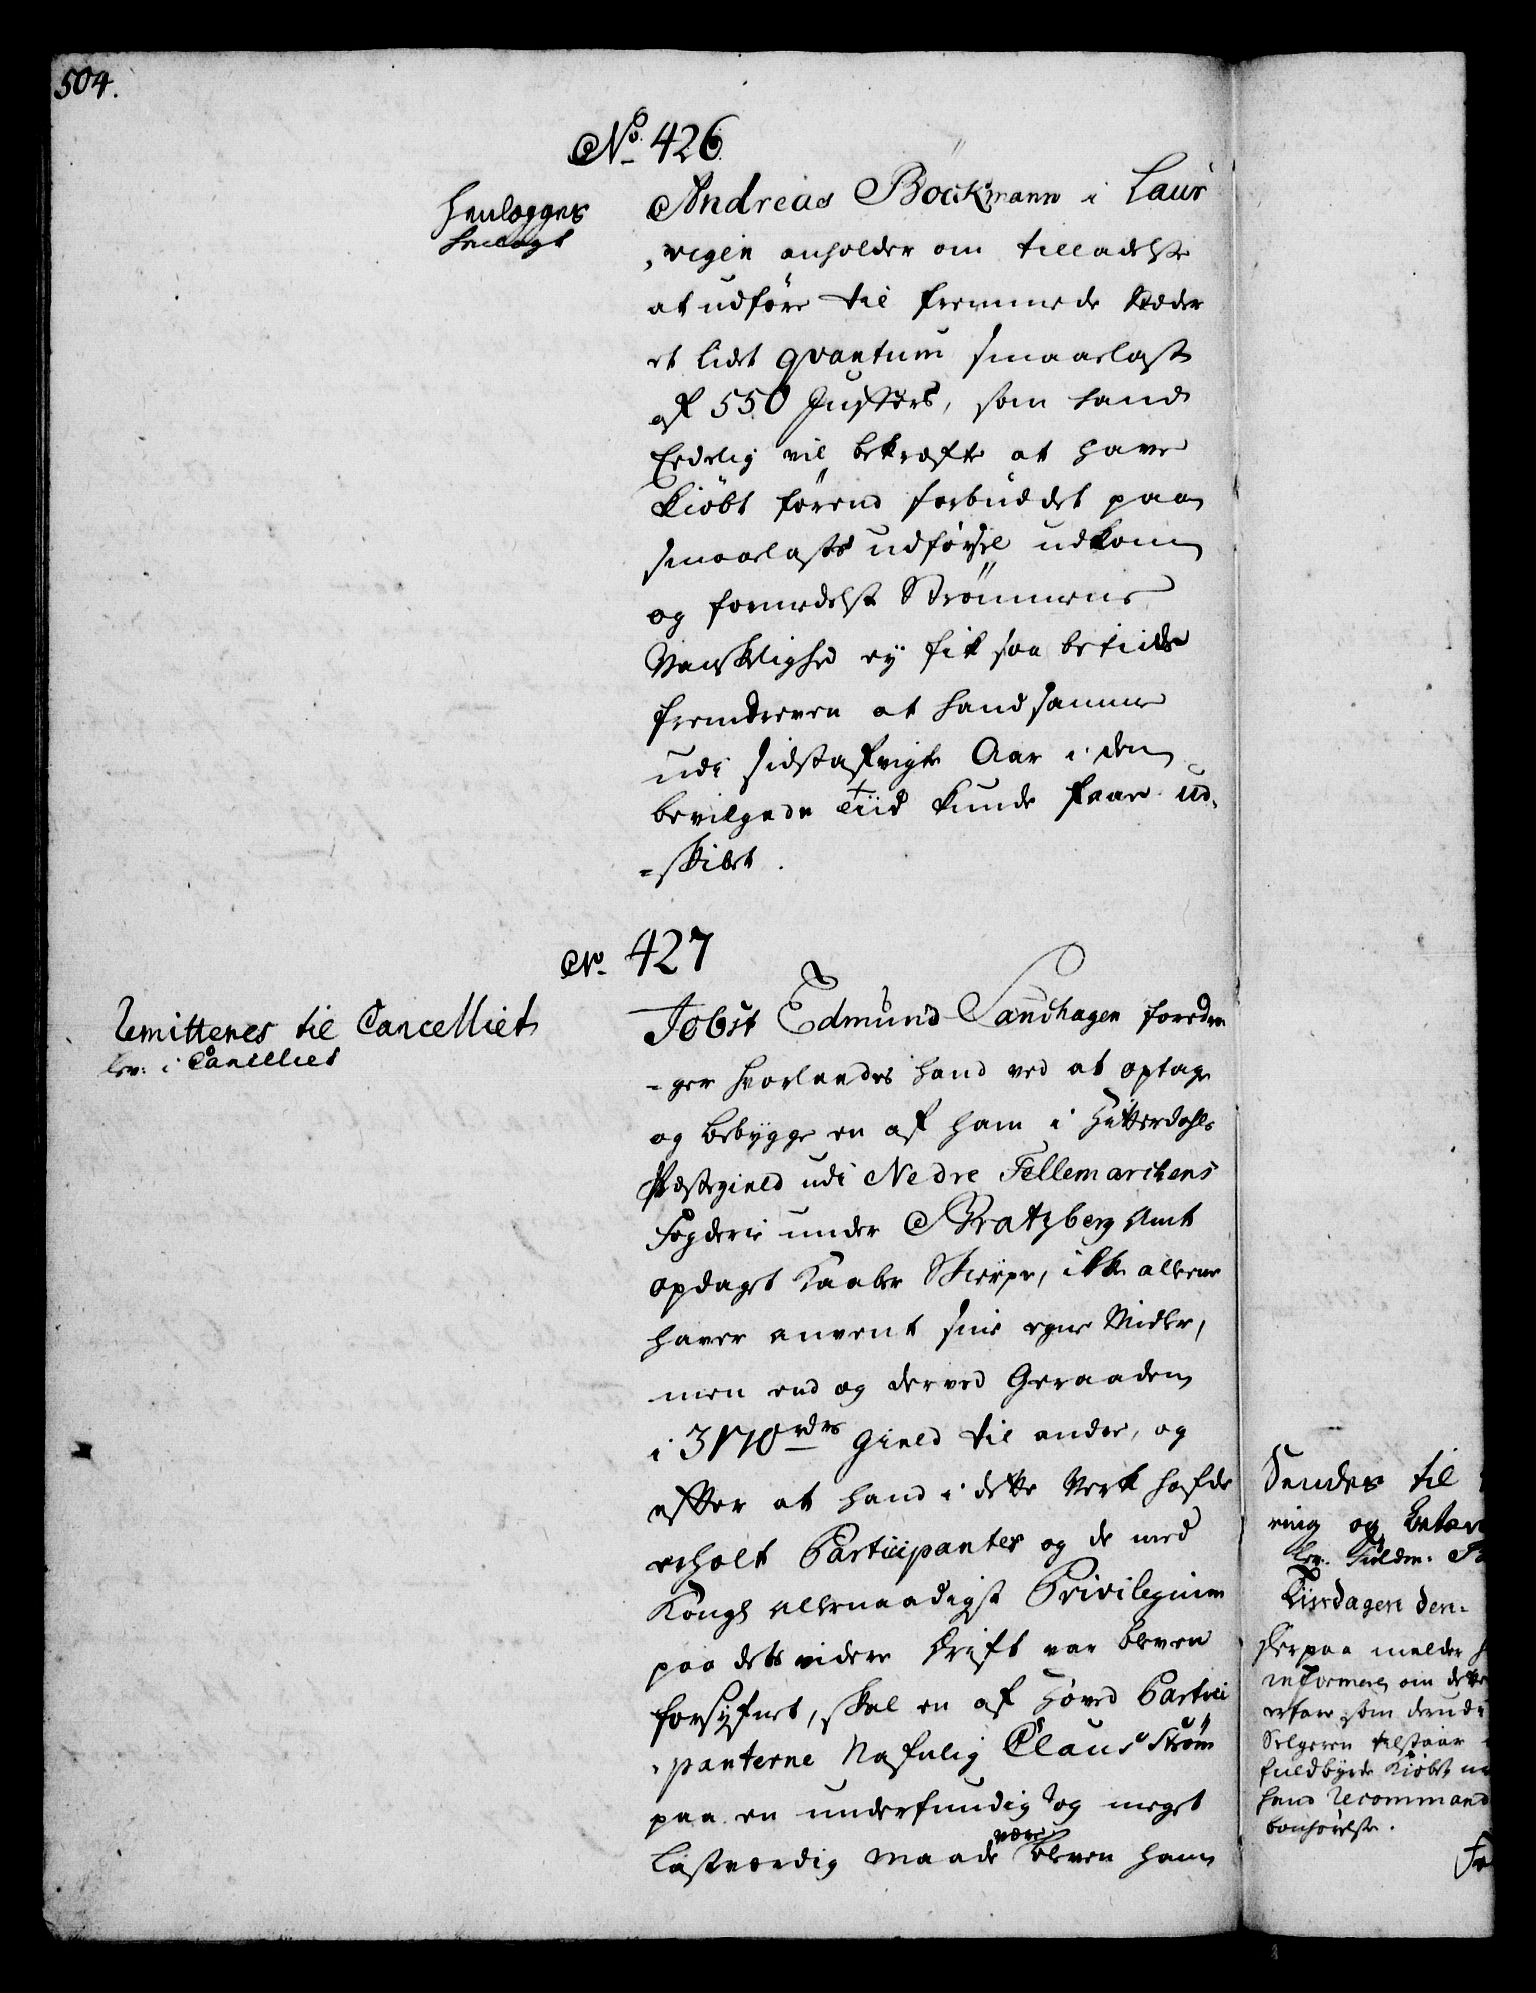 504.
No. 426
Henlægges
henlagt
Andreas Böckmann i Laur
,vigen anholder om tilladelse
at udföre til fremmede Stæder
et lidet qvantum smaaelast
af 550 Justers, som hand
Eedelig vil bekræfte at have
kiöbt förend forbuddet paa
smaaelasts udförsel udkom
og formedelst Strömmens
Vanskelighed ey fik saa betiids
fremdreven at hand samme
udi sidstafvigte Aar i den
bevilgede Tiid kunde faae ud,
=skibet.
No. 427
Remitteres til Cancelliet
lev: i Cancelliet
Jobst Edmund Sandhagen foredra
-ger hvorleedes hand ved at optage
og bebygge en af ham i Hitterdahls
Præstegield udi Nedre Tellemarckens
Fogderie under Bratzberg Amt
opdaget Kaaber Skierpe, ikke alleene
haver anvent sine egne Midler,
men end og derved Geraaden
i 3170 rdrs Gield til andre, og
efter at hand i dette Verk hafde
erholt Participanter og de med
Kongl allernaadigst Privilegium
paa dets videre Drift var bleven
forsÿnet, skal en af Hoved Partici
,panterne Nafnlig Claus Ström
paa en underfundig og meget
lastværdig Maade være bleven ham
Sendes til
ring og Betæn
lev. Fieldm.
Tiirsdagen den.
Herpaa melder
informere om dette
erfare som
Selgeren tilstaar
fuldbyrde Kiöbet
hand recommand
bönhörelse.